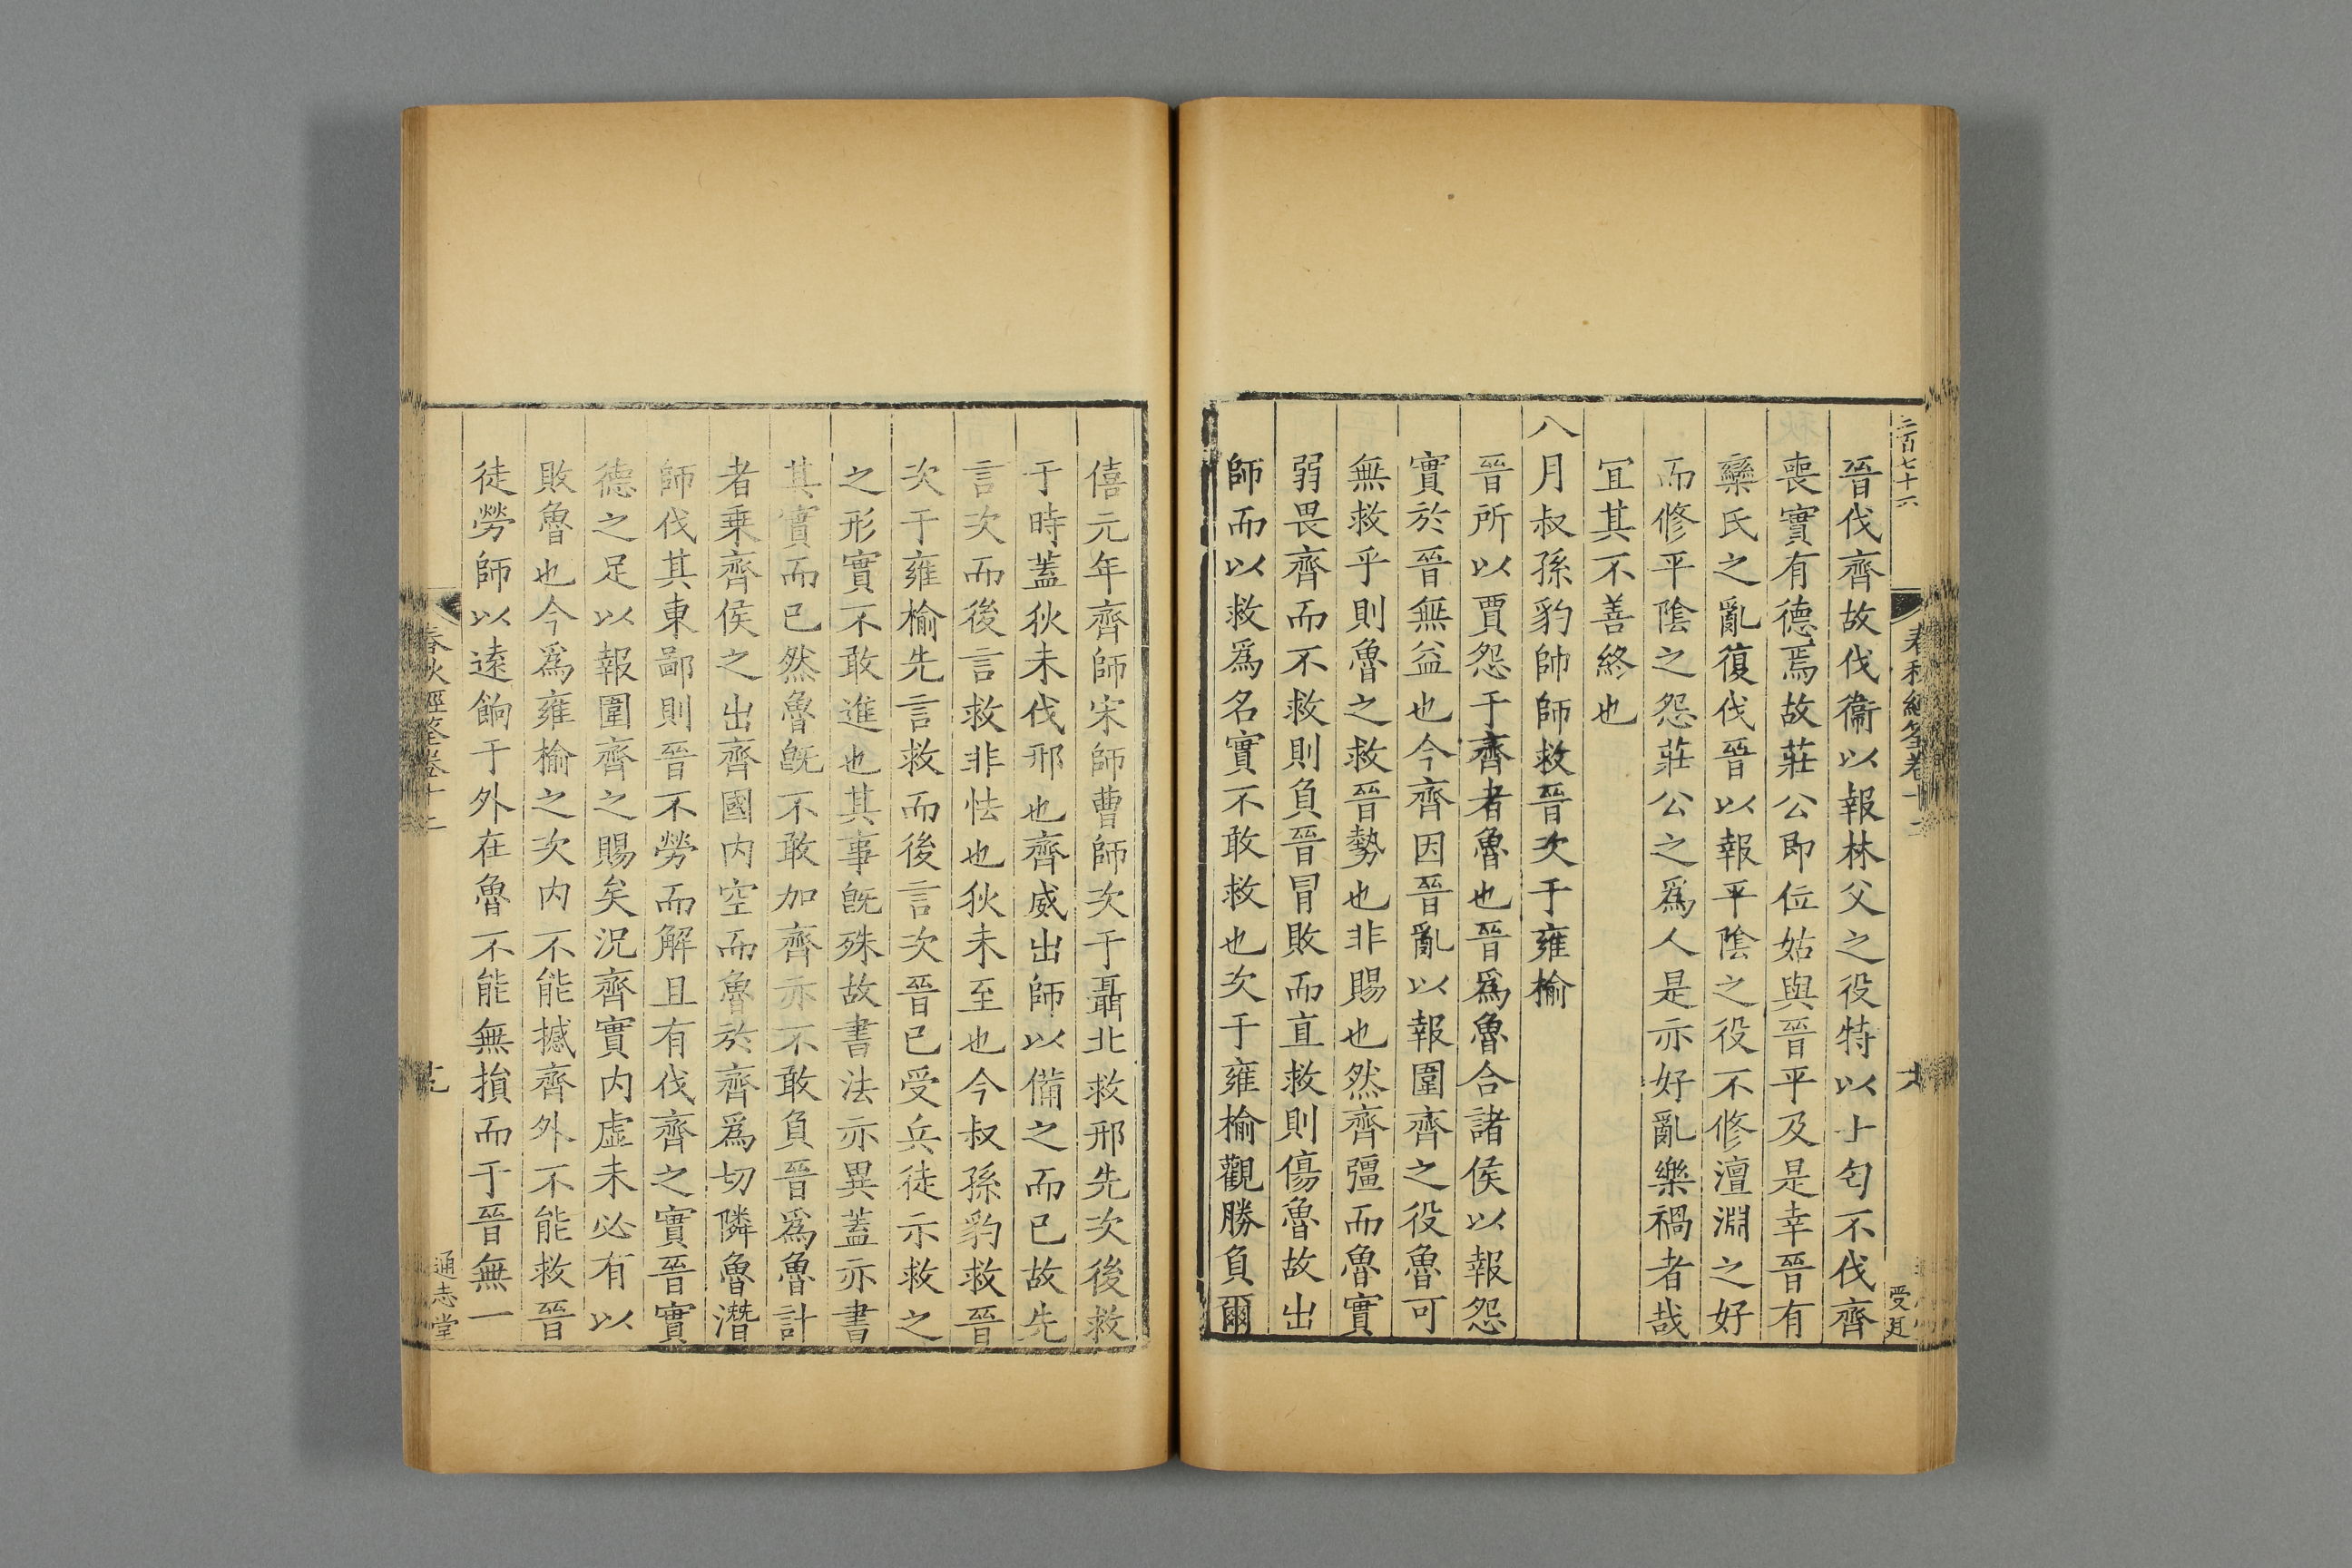 二百七十六
春秋經筌卷十二
受廷
晉伐齊故伐衞以報林父之役特以士匄不伐齊
喪實有德焉故莊公即位姑與晉平及是幸晉有
欒氏之亂復伐晉以報平隂之役不修澶淵之好
而修平隂之怨莊公之爲人是亦好亂樂禍者哉
冝其不善終也
八月叔孫豹帥師救晉次于雍榆
晉所以賈怨于齊者魯也晉爲魯合諸侯以報怨
實於晉無益也今齊因晉亂以報圍齊之役魯可
無救乎則魯之救晉勢也非賜也然齊彊而魯實
弱畏齊而不救則負晉冒敗而直救則傷魯故出
師而以救爲名實不敢救也次于雍榆觀勝負爾
僖元年齊師宋師曹師次于聶北救邢先次後救
于時蓋狄未伐邢也齊威出師以備之而已故先
言次而後言救非怯也狄未至也今叔孫豹救晉
次于雍榆先言救而後言次晉已受兵徒示救之
之形實不敢進也其事旣殊故書法亦異蓋亦書
其實而已然魯旣不敢加齊亦不敢負晉爲魯計
者乗齊侯之出齊國内空而魯於齊爲切隣魯潛
師伐其東鄙則晉不勞而解且有伐齊之實晉實
德之足以報圍齊之賜矣況齊實内虛未必有以
敗魯也今爲雍榆之次内不能撼齊外不能救晉
徒勞師以遠餉于外在魯不能無損而于晉無一
春秋經筌卷十二
通志堂